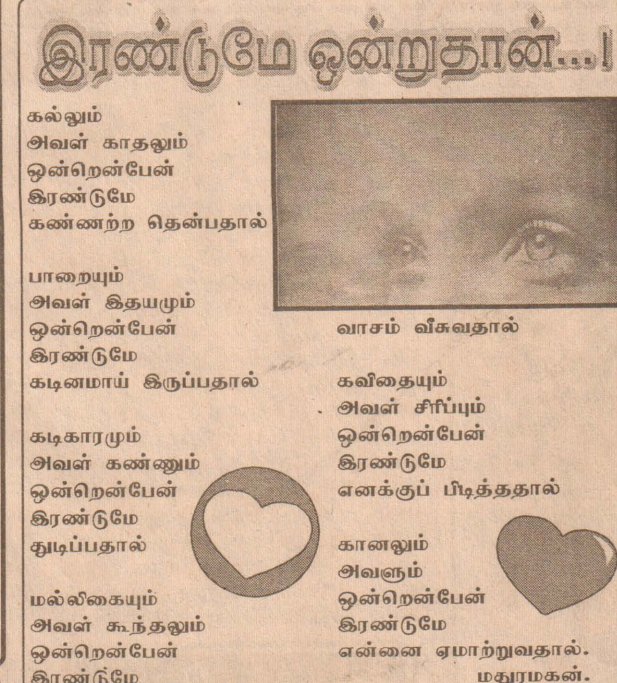 இரண்டுமே ஒன்றுதான்...!
கல்லும்
அவள் காதலும்
ஒன்றென்பேன்
இரண்டுமே
கண்ணற்ற தென்பதால்
பாறையும்
அவள் இதயமும்
ஒன்றென்பேன்
இரண்டுமே
கடினமாய் இருப்பதால்
கடிகாரமும்
அவள் கண்ணும்
ஒன்றென்பேன்
இரண்டுமே
துடிப்பதால்
மல்லிகையும்
அவள் கூந்தலும்
ஒன்றென்பேன்
இரண்டுமே
வாசம் வீசுவதால்
கவிதையும்
அவள் சிரிப்பும்
ஒன்றென்பேன்
இரண்டுமே
எனக்குப் பிடித்ததால்
கானலும்
அவளும்
ஒன்றென்பேன்
இரண்டுமே
என்னை ஏமாற்றுவதால்.
மதுரமகன்.